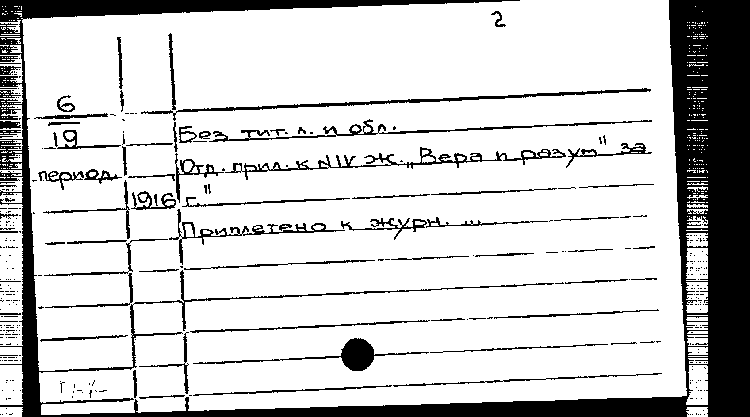 2
6
19
Без тит. л. и обл.
период. Отд. прил. к №IV ж. „Вера и разум" за
1916 г."
Приплетено к журн. ...